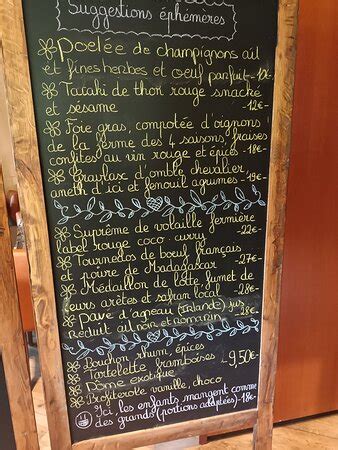 Suggestions éphémères
Poelée de champignons ail
et fines herbes et oeuf parfait -12€
Tataki de thon rouge snacké
et sésame -12€
Foie gras, compotée d'oignons
de la ferme des 4 saisons, fraises
confites au vin rouge et épices -18€
Gravlasc d'omble chevalier,
aneth d'ici et fenouil agrumes -19€
Suprême de volaille fermière
label rouge coco. curry -22€
Tournedos de boeuf français
et poivre de Madagascar -27€
Médaillon de lotte, fumet de
leurs arêtes et safran local -28€
Pavé d'agneau (Irlande) jus
réduit ail noir et romarin -28€
Bouchon rhum, épices
Tartelette framboises
9,50€
Dôme exotique
Profiterole vanille, choco
Ici, les enfants mangent comme
des grands (portions adaptées) -18€